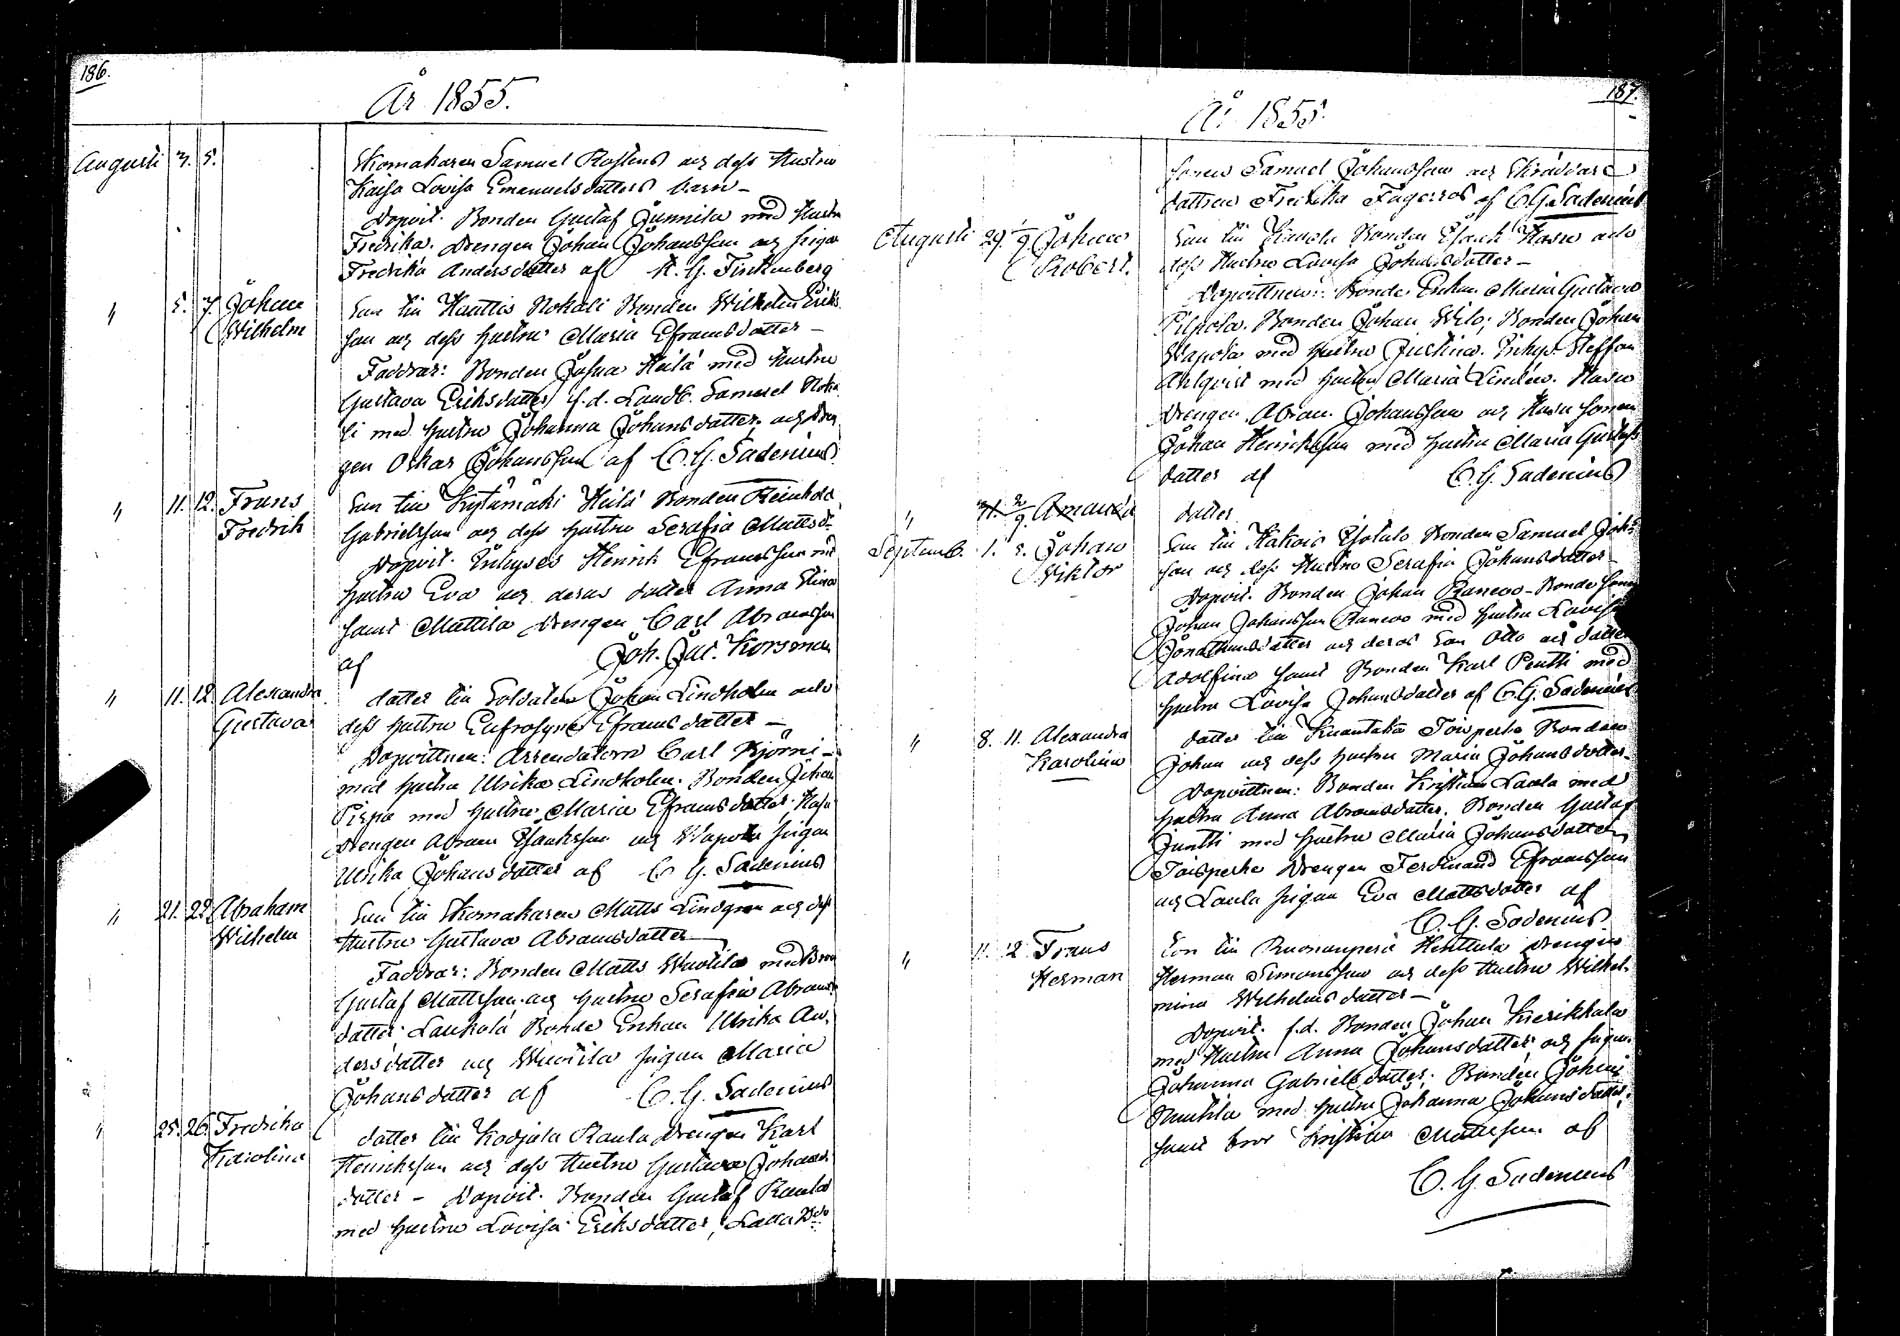 186.
År 1855.
Augusti 3. 5. Skomakaren Samuel Roslins och dess Hustru
Kajsa Lovisa Emanuelsdotters barn –
Dopvit. Bonden Gustaf Junnila med Hustru
Fredrika. Drengen Johan Johansson och pigan
Fredrika Andersdotter af K. G. Finkenberg
" 5. 7. Johan Son till Nokali Bonden Wilhelm Eriks
Wilhelm son och dess hustru Maria Efraimsdotter –
Faddrar: Bonden Josua Heilä med hustru
Gustava Eriksdotter, f.d. Landb. Samuel
med hustru Johanna Johansdotter och Dren
gen Oskar Johansson af C. G. Sadenius
" 11. 12. Frans Son till Kylämäki Heilä Bonden Reinhold
Fredrik Gabrielsson och dess hustru Serafia Mattsd:r
Dopvit. Inhyses Henrik Efraimsson med
hustru Eva och deras dotter Anna Stina
samt Mattila Drengen Carl Abramsson
af Joh. Jac. Korsman
" 11. 12. Alexandra dotter till Soldaten Johan Lindholm och
Gustava dess hustru Eufrosyne Efraimsdotter –
Dopvittnen: Arrendatorn Carl Björni
med hustru Ulrika Lindholm. Bonden Johan
Pispa med hustru Maria Efraimsdotter.
Drengen Abram Isaksson och Wapola pigan
Ulrika Johansdotter af C. G. Sadenius
" 21. 22. Abraham Son till Skomakaren Matts Lindgren och dess
Wilhelm Hustru Gustava Abramsdotter
Faddrar: Bonden Matts Wuolila med Bror
Gustaf Mattsson och hustru Serafia Abrams
dotter; Laukola Bonde Enkan Ulrika An
dersdotter och Wuolila pigan Maria
Johansdotter af C. G. Sadenius
" 25. 26. Fredrika dotter till Kodjala Raula Drengen Karl
Karolina Henriksson och dess Hustru Gustava Johans
dotter – Dopvit. Bonden Gustaf Raula
med hustru Lovisa Eriksdotter,
187.
År 1855.
sonen Samuel Johansson och Skräddare
dottren Fredrika Fagerros af C G Sadenius
Augusti 29. 1/9 Johan Son till Bonden Isack och
Robert. dess Hustru Lovisa Johansdotter –
Dopvittnen: Bonde Enkan Maria Gustava
Pilpola. Bonden Johan Wilo; Bonden Johan
Wapola med hustru Justina. Inhys. Steffan
Ahlqvist med hustru Maria Lindén.
Drengen Abram Johansson och
Johan Henriksson med hustru Maria Gustafs
dotter af C. G. Sadenius
" 31. 2/9. Amanda dotter
Septemb. 1. 2. Johan Son till Isotalo Bonden Samuel Johs
Viktor son och dess Hustru Serafia Johansdotter –
Dopvit. Bonden Johan – Bonde sonen
Johan Johansson med hustru Lovisa
Jonathansdotter och deras son Otto och dotter
Adolfina samt Bonden Karl Pentti med
hustru Lovisa Johansdotter af C. G. Sadenius
" 8. 11. Alexandra dotter till Toisperhe Bonden
Karolina Johan och dess hustru Maria Johansdotter –
Dopvittnen: Bonden Kristian Laula med
hustru Anna Abramsdotter. Bonden Gustaf
Juntti med hustru Maria Johansdotter,
Toisperhe Drengen Ferdinand Efraimsson
och Laula pigan Eva Mattsdotter af
C. G. Sadenius
" 11. 12. Frans Son till Hinttula Drengen
Herman Herman Simonsson och dess Hustru Wilhel
mina Wilhelmsdotter –
Dopvit. f.d. Bonden Johan Kierikkala
med Hustru Anna Johansdotter och pigan
Johanna Gabrielsdotter. Bonden Johan
med hustru Johanna Johansdotter,
samt bror Kristian Mattsson af
C. G. Sadenius